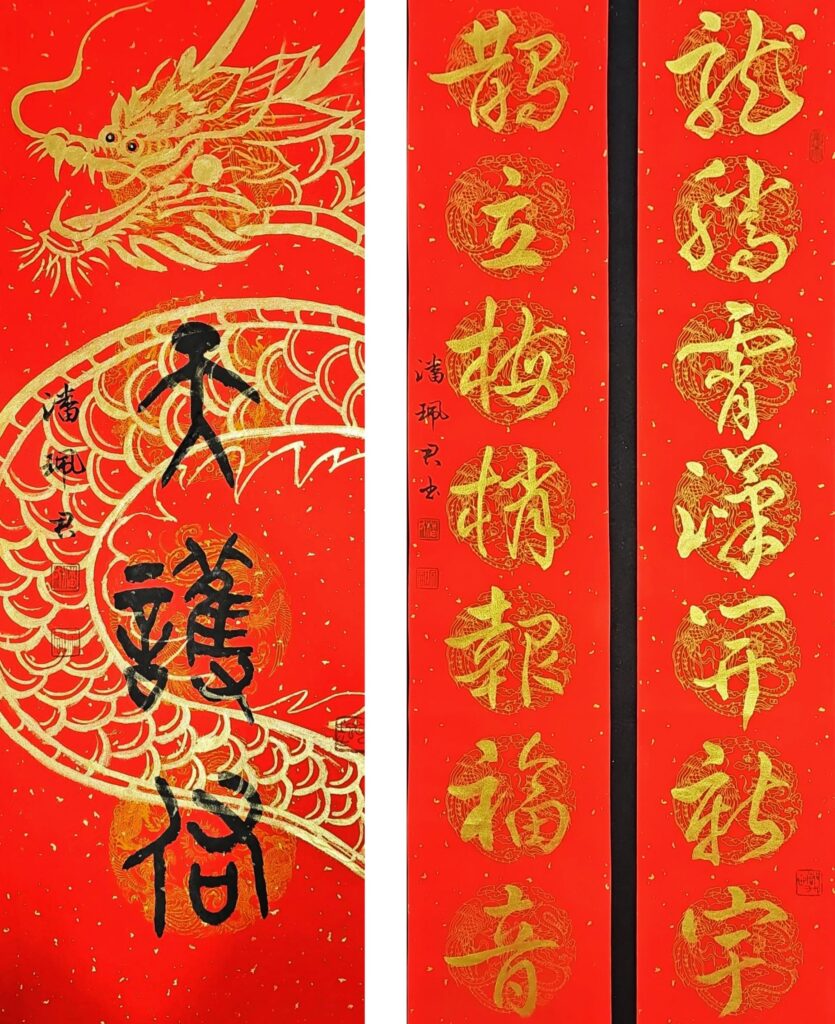 天護佑
潘珮君
龍騰霄漢開新宇
鵲立梅梢報福音
潘珮君书